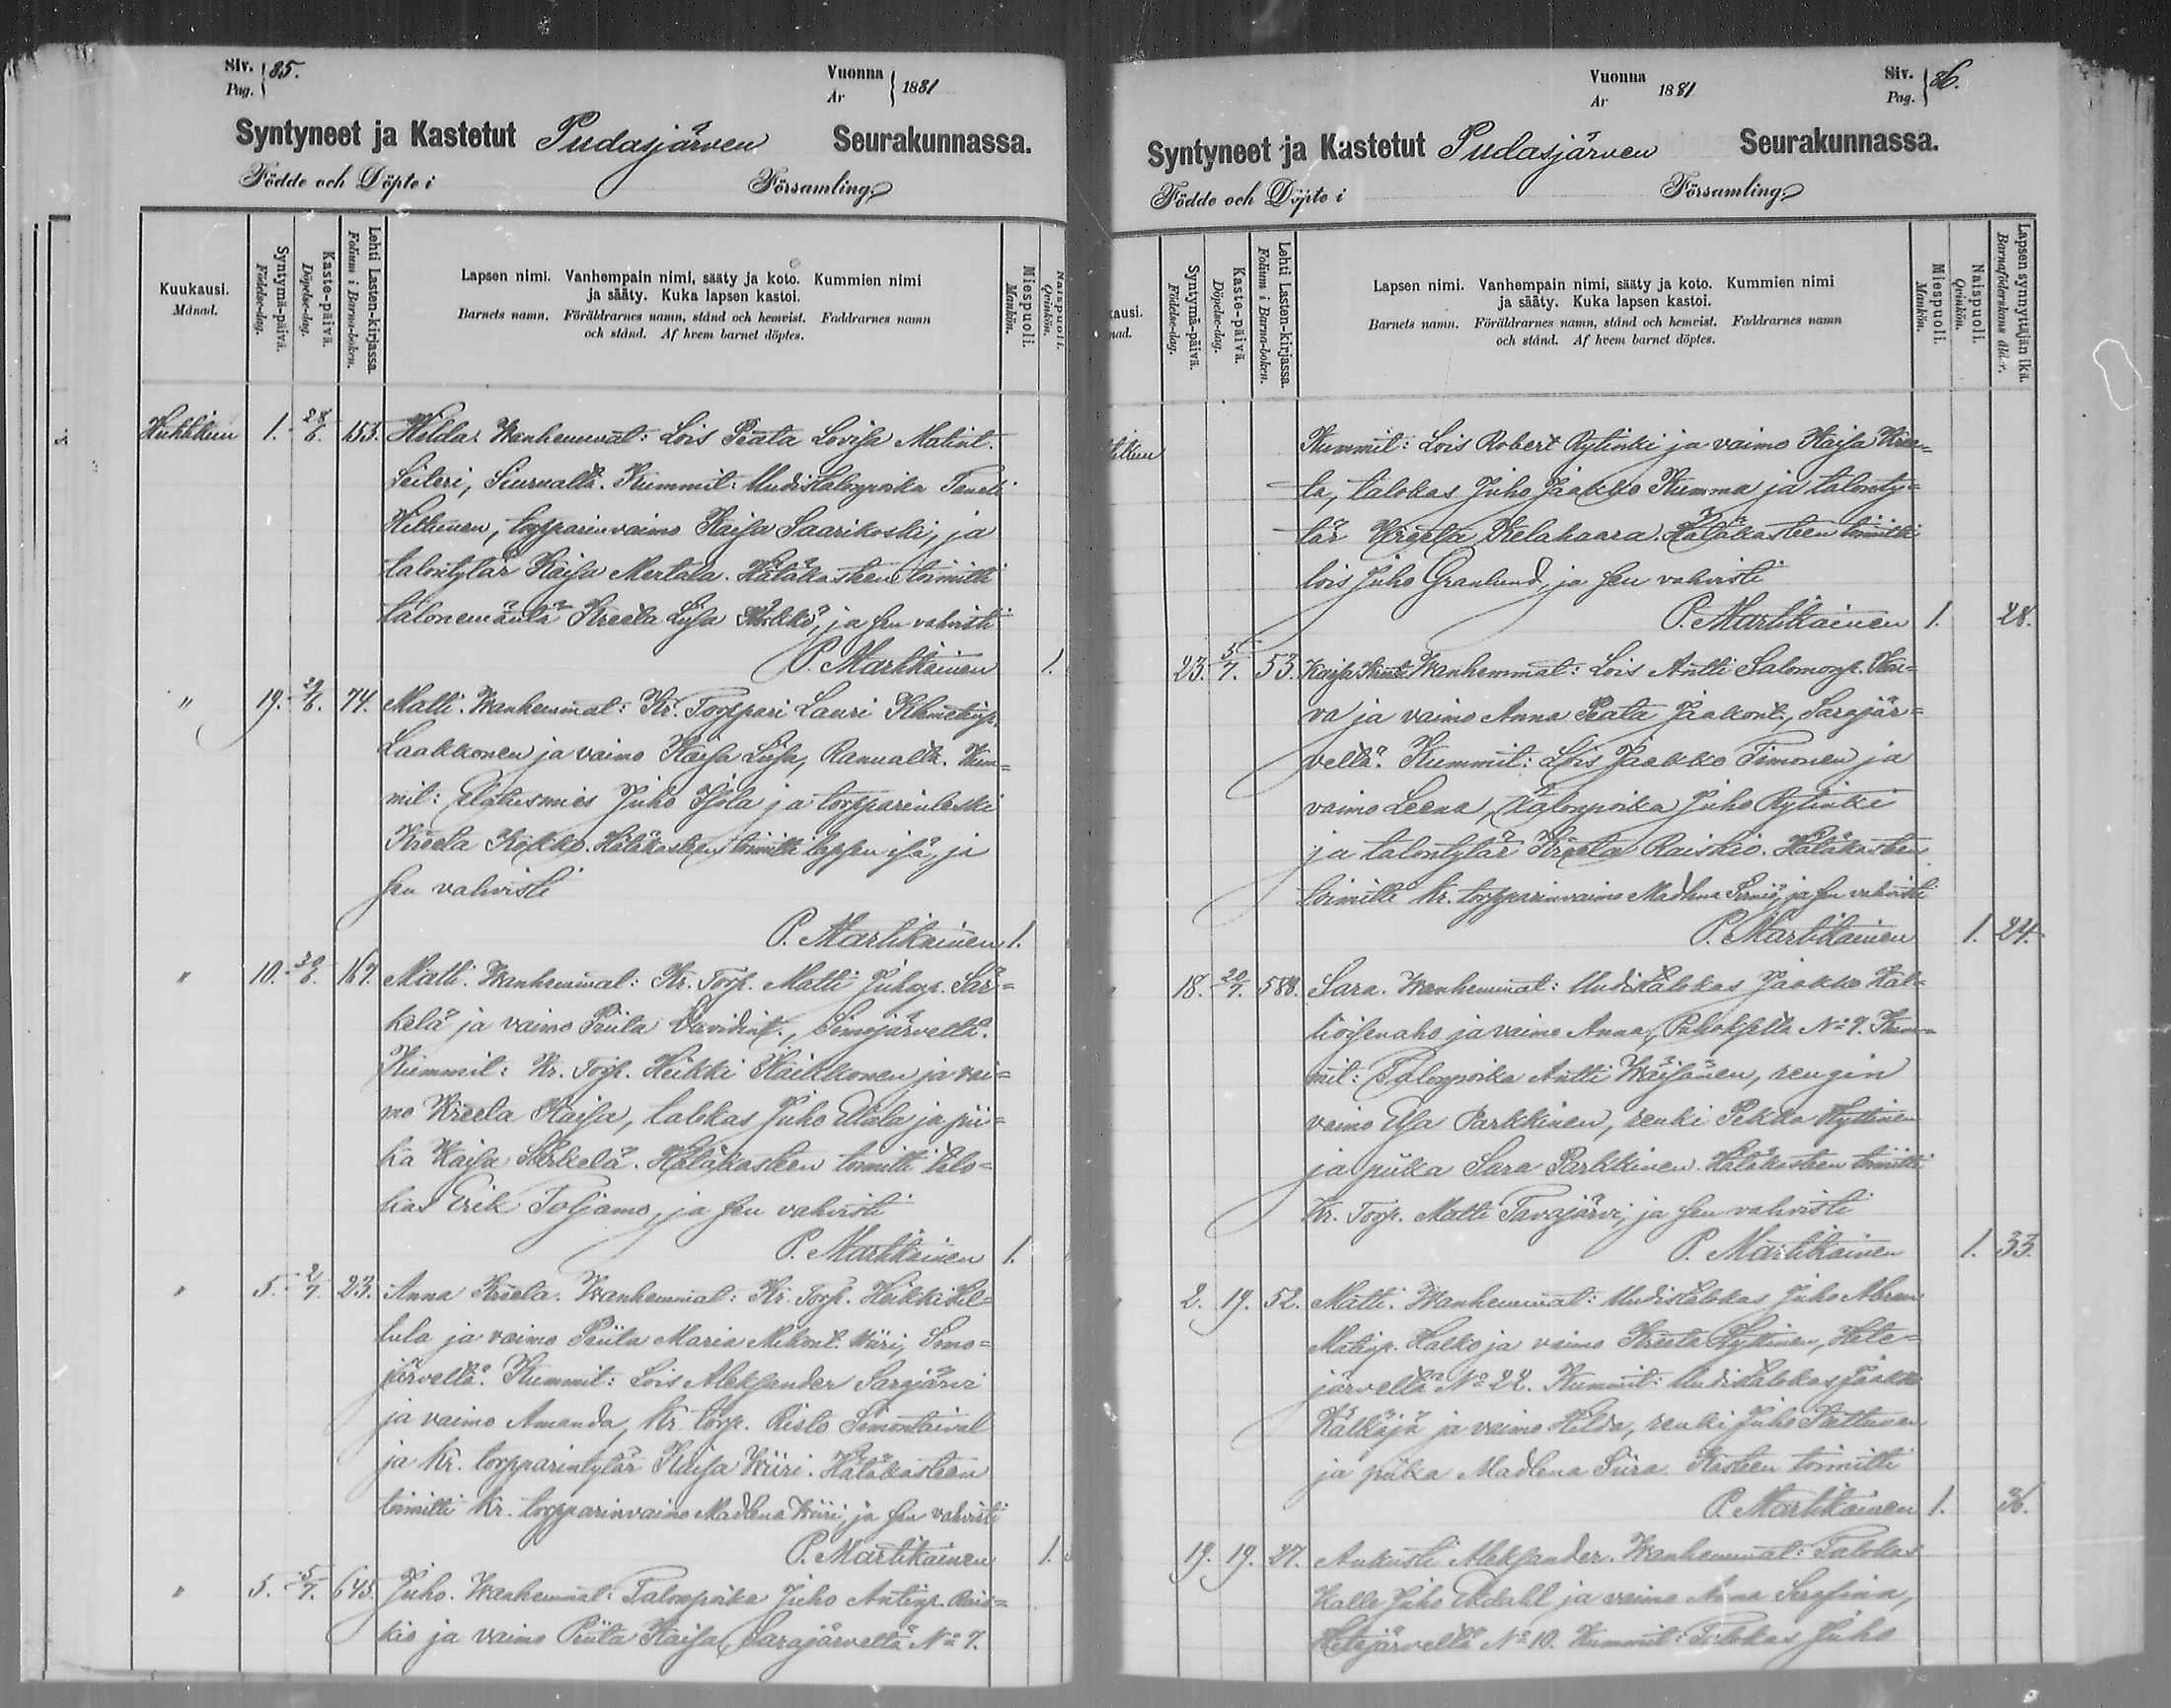 Siv. 85.
Pag.
Vuonna 1881
Ar
Syntyneet ja Kastetut Pudasjärven Seurakunnassa.
Födde och Döpte i Församling
Kuukausi. Månad.
Syntymä-päivä. Födelse-dag.
Kaste-päivä. Döpelse-dag.
Lehti Lasten-kirjassa. Folium i Barna-boken.
Lapsen nimi. Vanhempain nimi, sääty ja koto. Kummien nimi
ja sääty. Kuka lapsen kastoi.
Barnets namn. Föräldrarnes namn, stånd och hemvist. Faddrarnes namn
och stånd. Af hvem barnet döptes.
Miespuoli. Mankön.
Naispuoli. Qvinkön.
Huhtikuu 1. 28/6. 153. Hilda. Wanhemmat: Lois Peata Lovisa Matint.
Seiteri, Siurualta. Kummit: Uudistalonpoika Taneli
Hiltunen, torpparinvaimo Kaisa Saarikoski, ja
talontytär Kaisa Mertala. Hätäkasteen toimitti
talonemäntä Kreeta Liisa Kokko, ja sen vahvisti
P. Martikainen 1.
" 19. 29/6. 74. Matti. Wanhemmat: Kr. Torppari Lauri Klemetinp.
Laakkonen ja vaimo Kaisa Liisa, Ranualta. Kum=
mit: Elatusmies Juho Ilola ja torpparinleski
Kreeta Kokko. Hätäkasteen toimitti lapsen isä, ja
sen vahvisti
P. Martikainen 1.
" 10. 30/6. 167. Matti. Wanhemmat: Kr. Torp. Matti Juhonp. Sär=
kelä ja vaimo Piita Davidint., Simojärveltä.
Kummit: Kr. Torp. Heikki Kaikkonen ja vai=
mo Kreeta Kaisa, talokas Juho Alala ja pii=
ka Kaisa Särkelä. Hätäkasteen toimitti talo=
kas Erik Toljamo, ja sen vahvisti
P. Martikainen 1.
" 5. 2/7. 23. Anna Kreeta. Wanhemmat: Kr. Torp. Heikki Hil=
tula ja vaimo Piita Maria Mikont. Wiiri, Simo=
järveltä. Kummit: Lois Aleksander Sarajärvi
ja vaimo Amanda, Kr. torp. Risto Simontaival
ja Kr. torpparintytär Kaisa Wiiri. Hätäkasteen
toimitti Kr. torpparinvaimo Madlena Wiiri, ja sen vahvisti
P. Martikainen 1.
" 5. 5/7. 645. Juho. Wanhemmat: Talonpoika Juho Antinp. Rais=
kio ja vaimo Piita Kaisa, Sarajärveltä No 7.
Vuonna 1881
Ar
Siv. 86.
Pag.
Syntyneet ja Kastetut Pudasjärven Seurakunnassa.
Födde och Döpte i Församling
kausi. nad.
Syntymä-päivä. Födelse-dag.
Kaste-päivä. Döpelse-dag.
Lehti Lasten-kirjassa. Folium i Barna-boken.
Lapsen nimi. Vanhempain nimi, sääty ja koto. Kummien nimi
ja sääty. Kuka lapsen kastoi.
Barnets namn. Föräldrarnes namn, stånd och hemvist. Faddrarnes namn
och stånd. Af hvem barnet döptes.
Miespuoli. Mankön.
Naispuoli. Qvinkön.
Lapsen synnyttäjän ikä. Barnaföderskans ålder.
Kummit: Lois Robert Rytinki ja vaimo Kaisa Kree=
ta, talokas Juho Jaakko Kumma ja talonty=
tär Kreeta Kelahaara. Hätäkasteen toimitti
lois Juho Granlund, ja sen vahvisti
P. Martikainen 1. 28.
23. 5/7. 53. Kaisa Wanhemmat: Lois Antti Salomonp.
va ja vaimo Anna Peata Jaakont., Sarajär=
veltä. Kummit: Lois Jaakko Timonen ja
vaimo Leena, Talonpoika Juho Rytinki
ja talontytär Kreeta Raiskio. Hätäkasteen
toimitti Kr. torpparinvaimo Madlena ja sen vahvisti
P. Martikainen 1. 24.
18. 20/7. 588. Sara. Wanhemmat: Uudistalokas Jaakko Kal=
lioisenaho ja vaimo Anna, Puhokselta No 7. Kum=
mit: Talonpoika Antti Wäisänen, rengin
vaimo Elsa Parkkinen, renki Pekka Hyttinen
ja piika Sara Parkkinen. Hätäkasteen toimitti
Kr. Torp. Matti Tavajärvi, ja sen vahvisti
P. Martikainen 1. 33.
2. 19. 52. Matti. Wanhemmat: Uudistalokas Juho Abram
Matinp. Halko ja vaimo Kreeta Hyttinen, Hete=
järveltä No 22. Kummit: Uudistalokas Jaakko
Kälkäjä ja vaimo Hilda, renki Juho Puttunen
ja piika Madlena Siira. Kasteen toimitti
P. Martikainen 1. 36.
19. 19. 27. Aukusti Aleksander. Wanhemmat: Talokas
Kalle Juho Ekdahl ja vaimo Anna Serafina,
Hetejärveltä No 10. Kummit: Talokas Juho